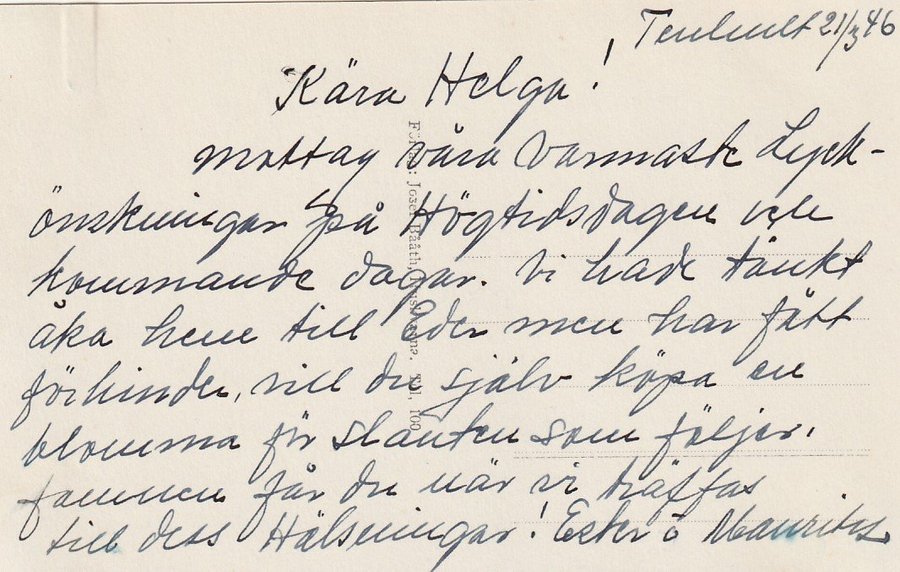 Tenhult 21/3 46
Kära Helga!
mottag våra varmaste Lyck-
önskningar på Högtidsdagen och
kommande dagar. Vi hade tänkt
åka hem till Eder men har fått
förhinder, vill du själv köpa en
blomma för slanten som följer,
famnen får du när vi träffas
till dess Hälsningar! Ester o Mauritz.
Tel. 100